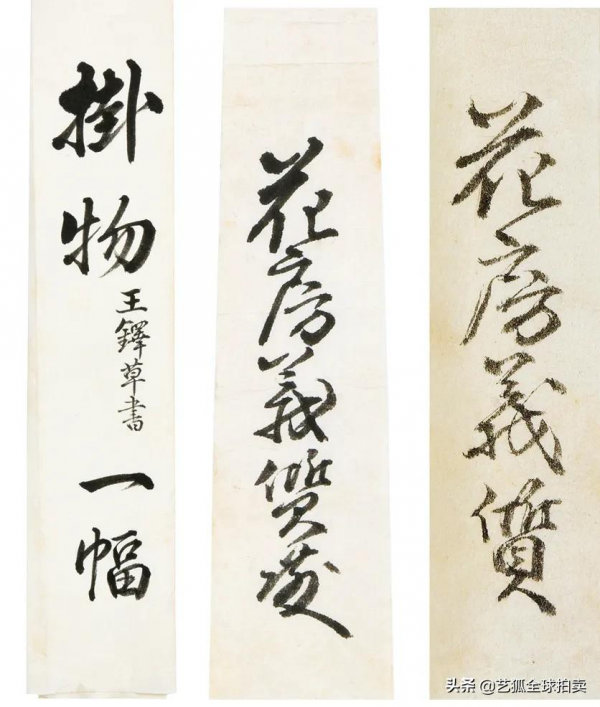 掛物
王鐸草書
一幅
花房義質
花房義質
头条 @艺狐全球拍卖